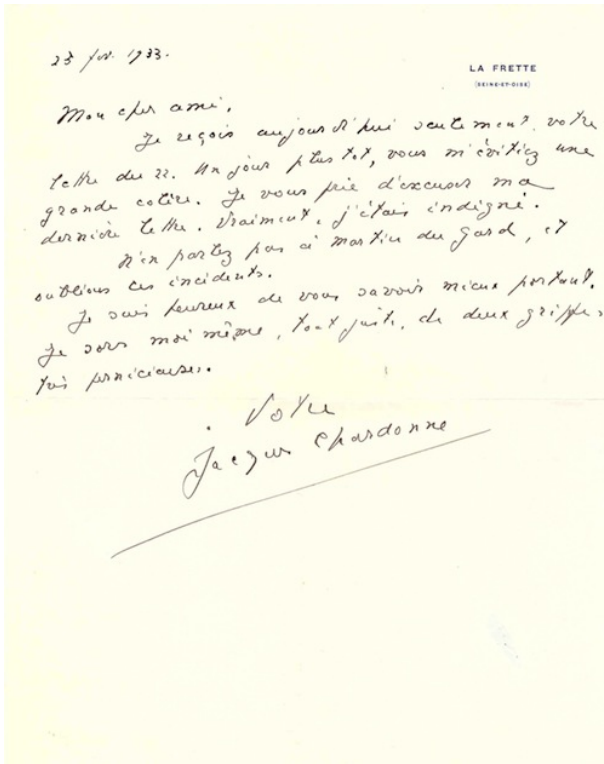 23 fév. 1933.
LA FRETTE
(SEINE-ET-OISE)
Mon cher ami,
Je reçois aujourd'hui seulement, votre
lettre du 22. Un jour plus tot, vous m'évitiez une
grande colère. Je vous prie d'excuser ma
dernière lettre. Vraiment, j'étais indigné.
N'en parlez pas à Martin du Gard, et
oublions ces incidents.
Je suis heureux de vous savoir mieux portant.
Je sors moi même, tout juste, de deux grippes
très pernicieuses.
Votre
Jacques Chardonne